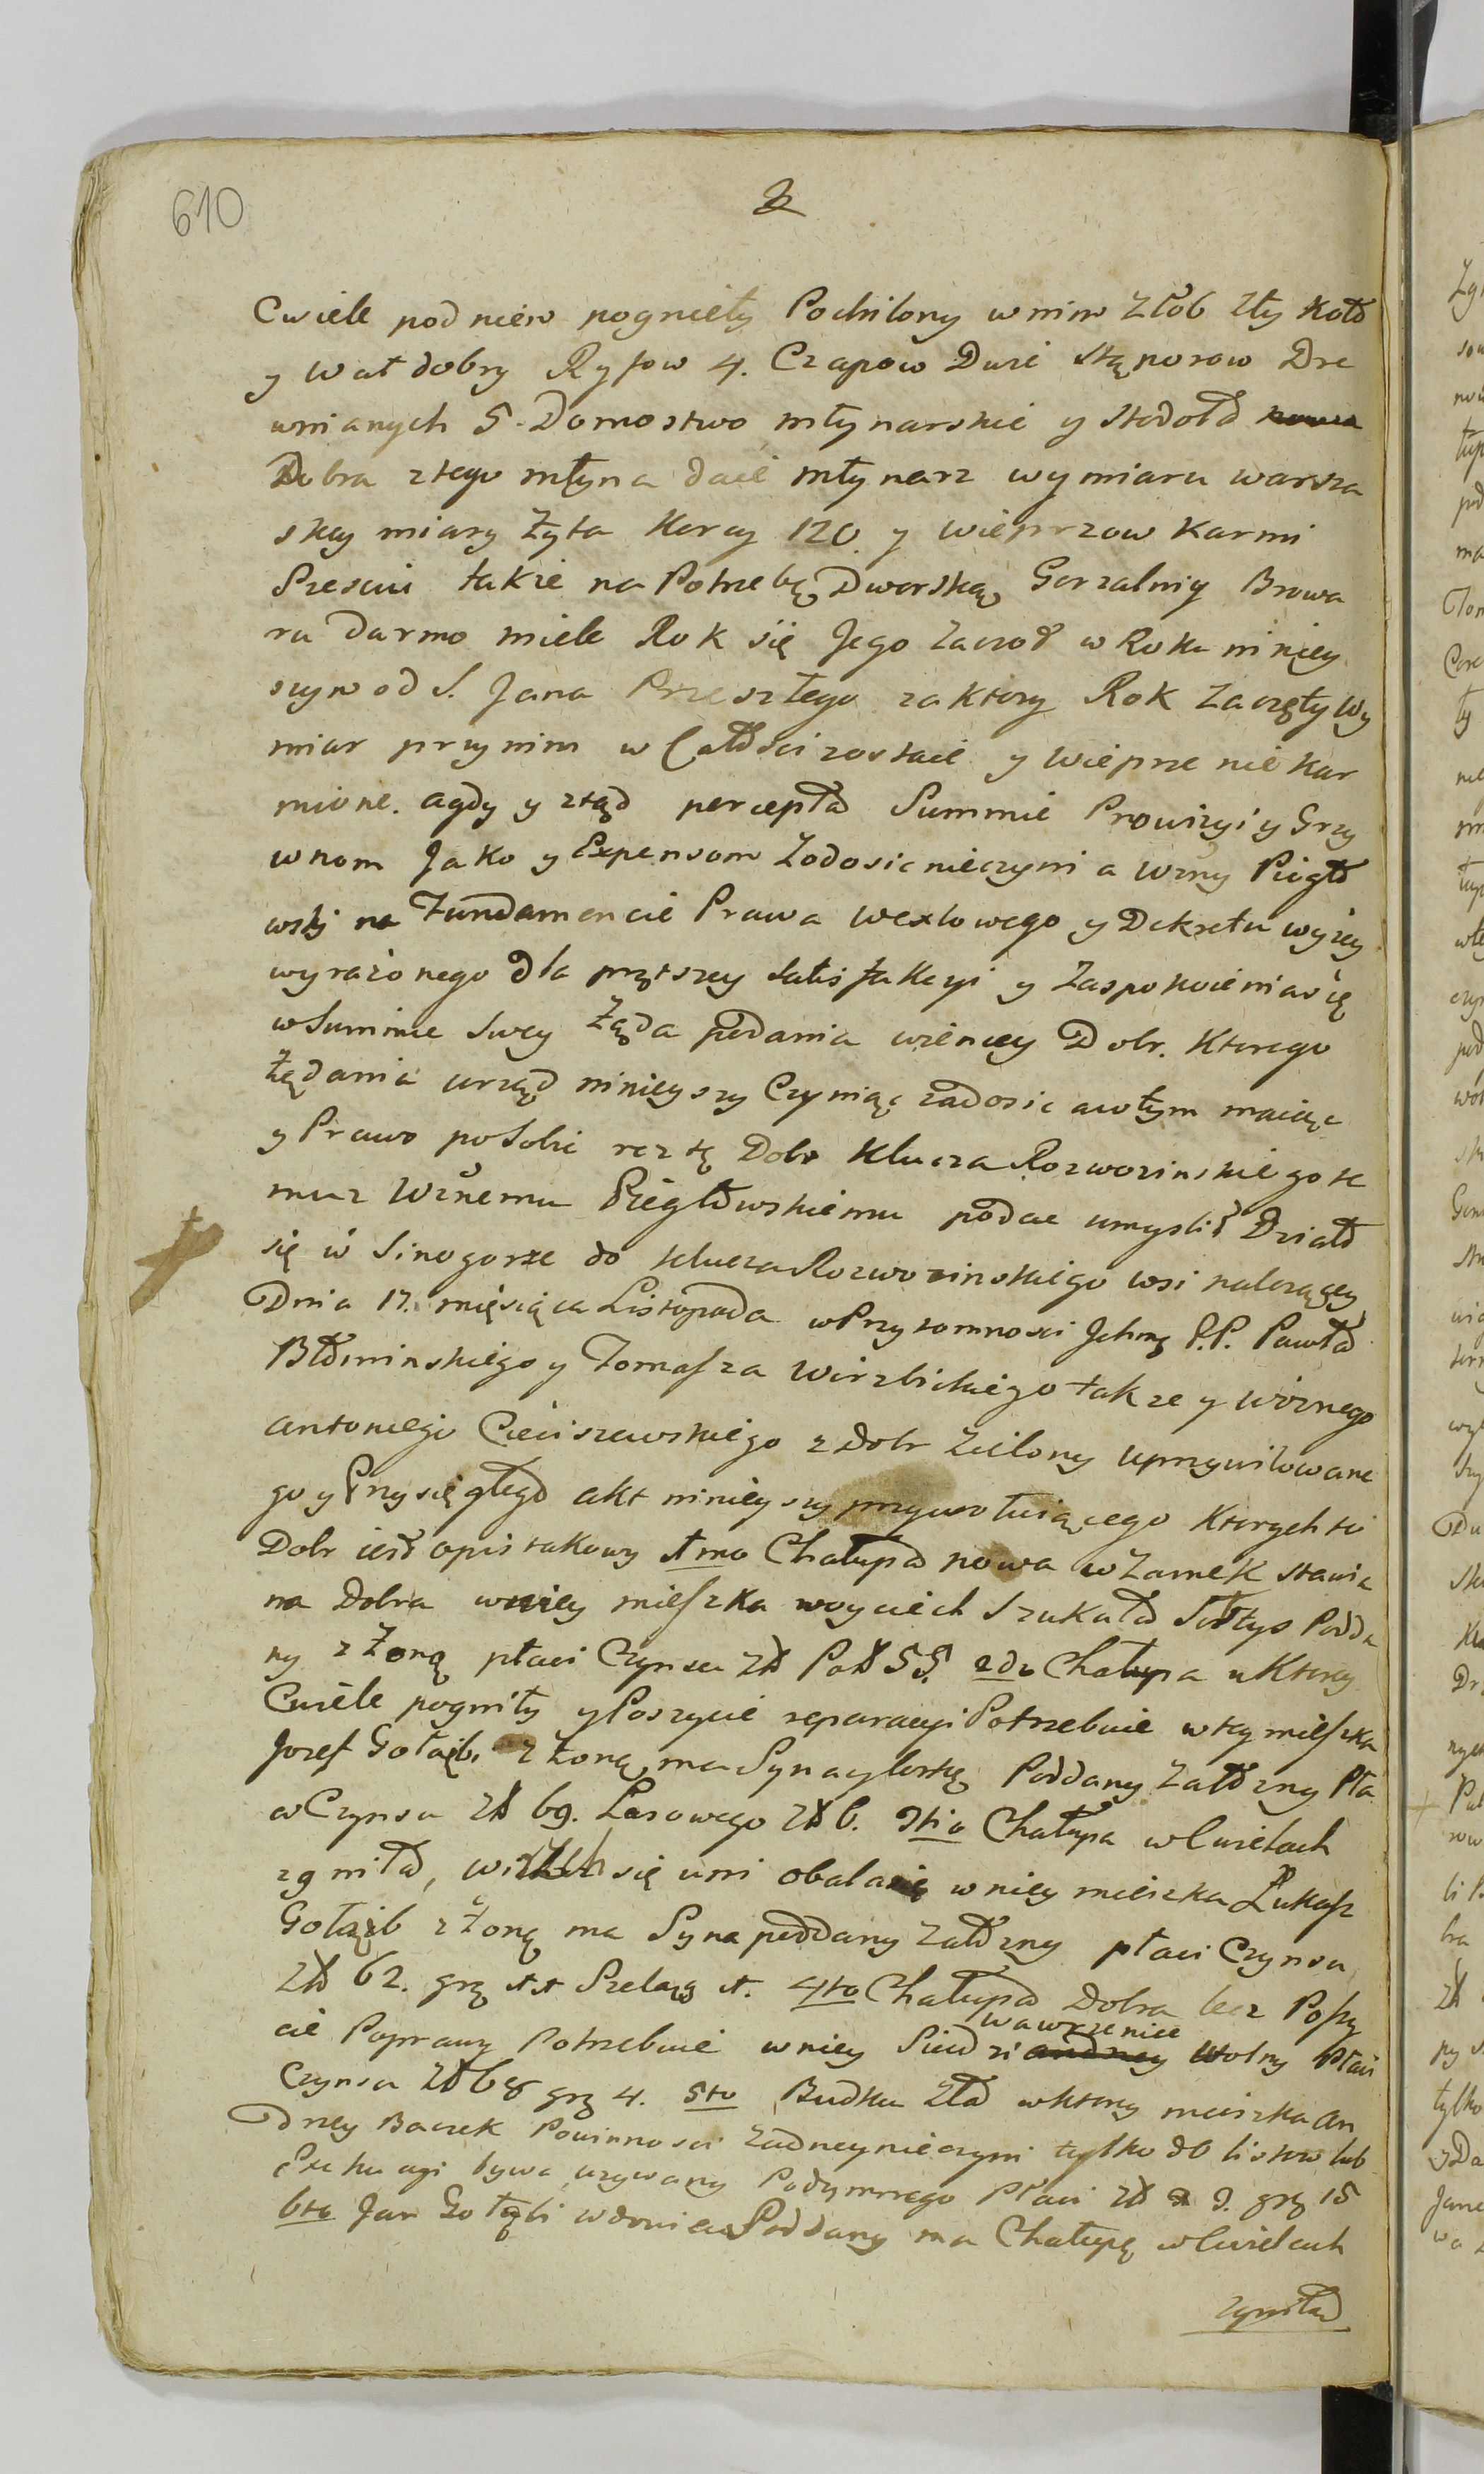 610
2
Cwiele pod niem pogniely Pochilony w nim Złob zły Koło
y Wał dobry Ryfow 4. Czapow Dwie Stąporow Dre
wnianych 5. Domostwo młynarskie y Stodoła nowa
Dobra z tego młyna daie młynarz wymiaru warsza
skey miary Żyta Korcy 120. y wieprzow Karmi
Szesciu takze na Potrzebę Dworską Gorzalniy Browa
ru darmo miele Rok się Jego zaczoł w Roku niniey
szym od S. Jana Przeszłego za ktory Rok Zaczęty Wy
miar przy nim w Całosci zostaie y wieprze nie kar
mione. agdy y ztąd percepta Summie Prowizyi y Grzy
wnom Jako y Expensom Zadosic nieczyni a Wzny Pigło
wski na Fundamencie Prawa wexlowego y Dekretu wyzey
wyrażonego dla prętszey Satisfakcyi y Zaspokoienia się
w Summie Swey Żąda podania wiencey Dobr. Ktorego
Żądania urząd ninieyszy Czyniąc zadosic a wtym maiąc
y Prawo po Sobie resztę Dobr Klucza Rozwozinskiego te
muz Wznemu Piegłowskiemu podac umyslił Działo
się w Sinogorze do Klucza Rozwozinskiego wsi nalezącey
Dnia 17. miesiąca Listopada w Przytomnosci Jchmę P.P. Pawła
Błominskiego y Tomasza Wirzbickiego takze y wóznego
antoniego Cieciszewskiego z Dobr Zielony uprzywilowane
go y Przysięgłego akt ninieyszy przywotuiącego ktorych to
Dobr iest opis takowy 1mo Chałupa nowa w Zamek stawia
na Dobra w niey mieszka woyciech Szukała Sołtys Podda
ny z Żoną płaci Czynsu Zł Pol 55. 2do Chałupa u Ktorey
Cwiele pogniły y Poszycie reparacyi Potrzebuie w tey mieszka
Jozef Gołąb z Żoną ma Syna y Corkę Poddany załozny Pła
ci Czynsu zł 69. Lasowego zł 6. 3tio Chałupa w Cwielach
zgniła, się w niey mieszka Łukasz
Gołąb z Żoną ma Syna poddany załozny płaci Czynsu
Zł 62. grę 11 Szeląg 1. 4to Chałupa Dobra lecz Poszy
cie Poprawy Potrzebuie w niey Siedzi andrzey wawrzeniec Wolny Płaci
Czynsu Zł 68 grę 4. 5to Budka Zła w ktorey mieszka An
drzey Baczek Powinnosci Zadney nieczyni tylko do listow lub
Exekucyi bywa uzywany Podymnego Płaci zł 9. grę 15
6to Jan Gołąb wdowiec Poddany ma Chałupę w Cwielach
zgniła